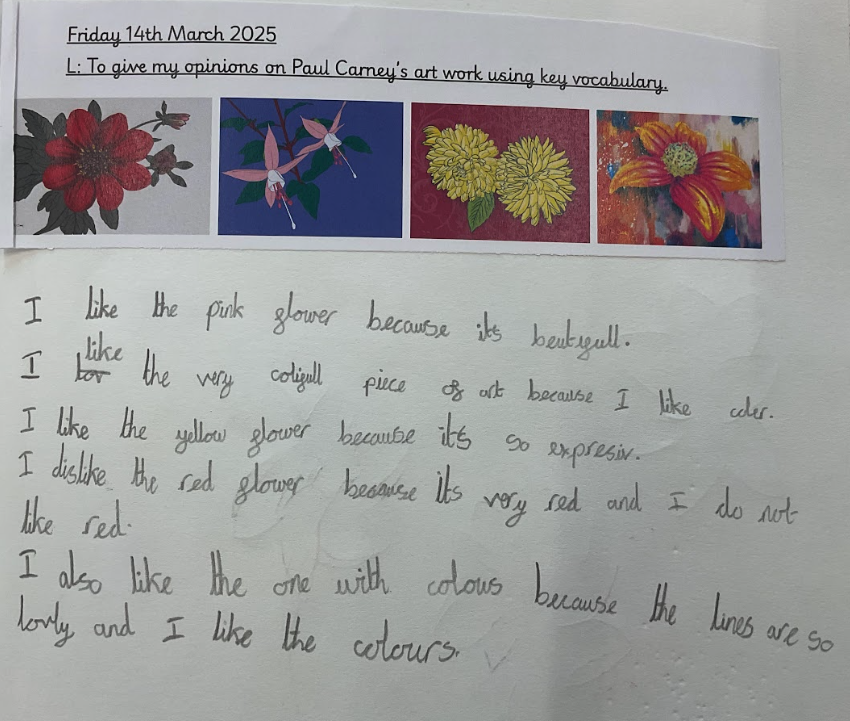 Friday 14th March 2025
L: To give my opinions on Paul Carney's art work using key vocabulary.
I like the pink flower because its beutyfull.
I like the very colifull piece of art because I like coler.
I like the yellow flower because it's so expresiv.
I dislike the red flower because its very red and I do not
like red.
I also like the one with colous because the lines are so
lovly and I like the colours.